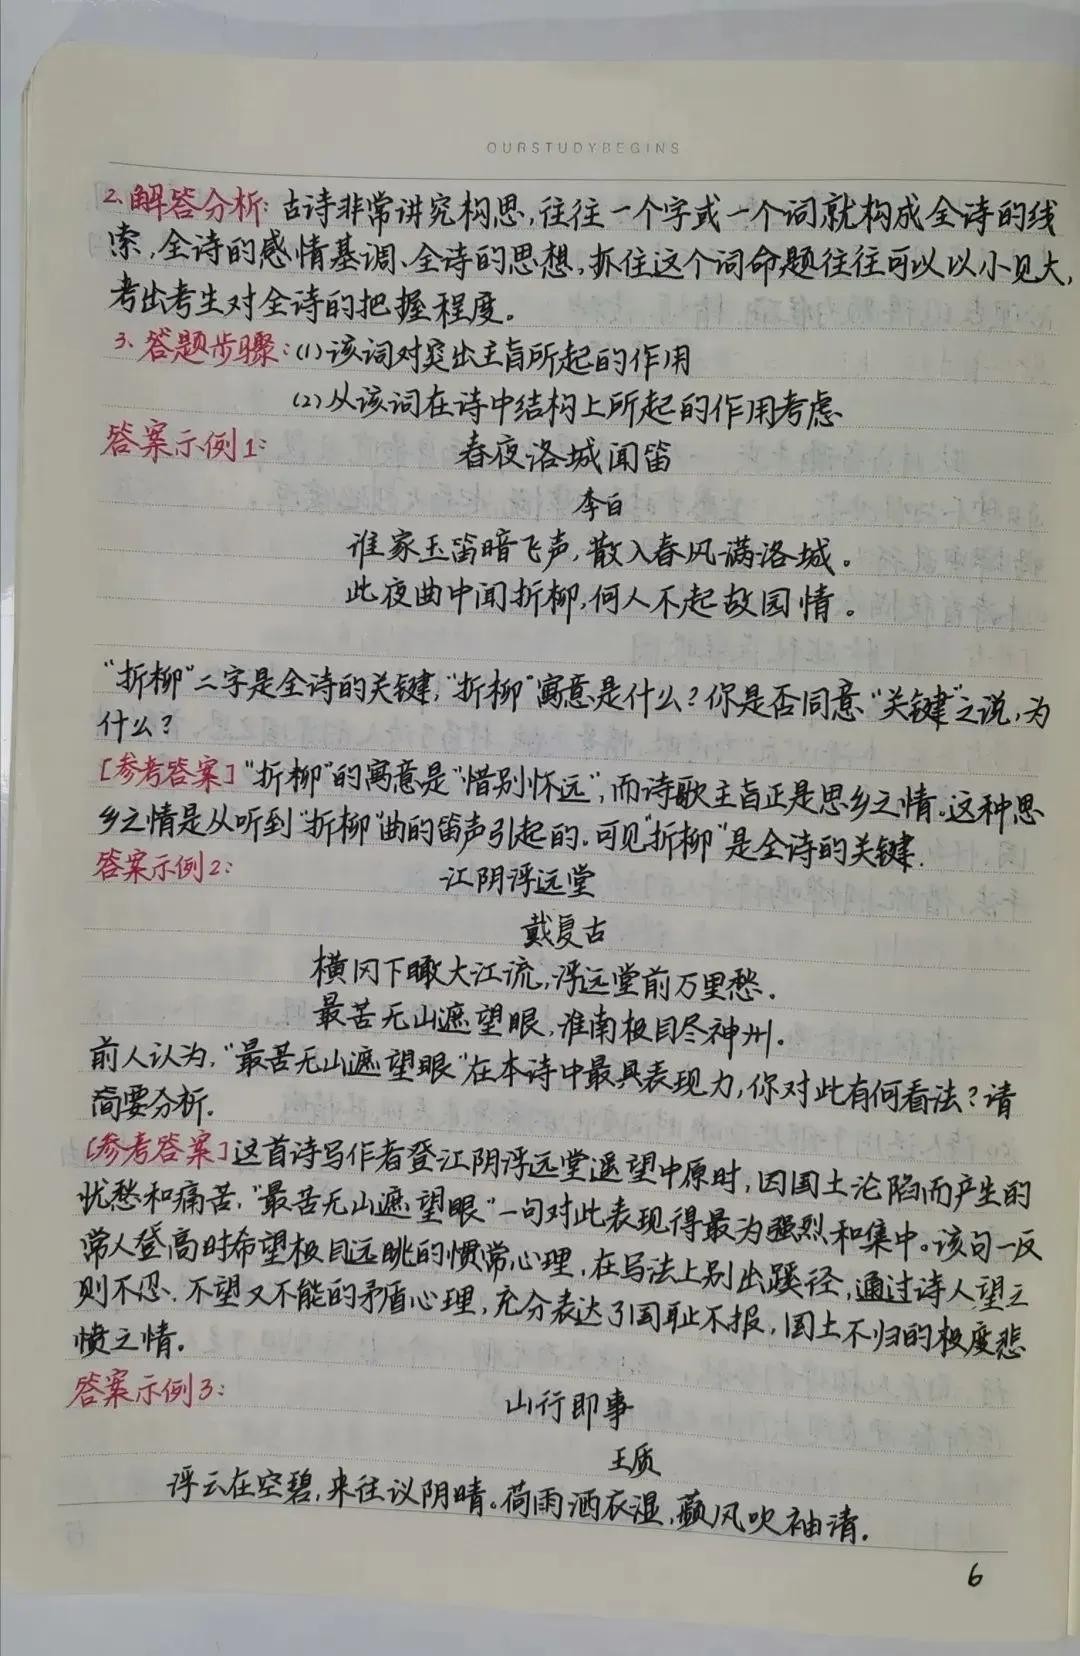 OURSTUDYBEGINS
2.解答分析:古诗非常讲究构思,往往一个字或一个词就构成全诗的线
索,全诗的感情基调、全诗的思想,抓住这个词命题往往可以以小见大,
考出考生对全诗的把握程度。
3、答题步骤:(1)该词对突出主旨所起的作用
(2)从该词在诗中结构上所起的作用考虑
答案示例1:
春夜洛城闻笛
李白
谁家玉笛暗飞声,散入春风满洛城。
此夜曲中闻折柳,何人不起故园情。
“折柳”二字是全诗的关键,“折柳”寓意是什么?你是否同意“关键”之说,为
什么?
[参考答案]“折柳”的寓意是“惜别怀远”,而诗歌主旨正是思乡之情。这种思
乡之情是从听到“折柳”曲的笛声引起的。可见“折柳”是全诗的关键.
答案示例2:
江阴浮远堂
戴复古
横冈下瞰大江流,浮远堂前万里愁.
最苦无山遮望眼,淮南极目尽神州.
前人认为,“最苦无山遮望眼”在本诗中最具表现力,你对此有何看法?请
简要分析.
[参考答案]这首诗写作者登江阴浮远堂遥望中原时,因国土沦陷而产生的
忧愁和痛苦,“最苦无山遮望眼”一句对此表现得最为强烈和集中。该句一反
常人登高时希望极目远眺的惯常心理,在写法上别出蹊径,通过诗人望之
则不忍、不望又不能的矛盾心理,充分表达了国耻不报,国土不归的极度悲
愤之情.
答案示例3:
山行即事
王质
浮云在空碧,来往议阴晴。荷雨洒衣湿,蘋风吹袖清.
6